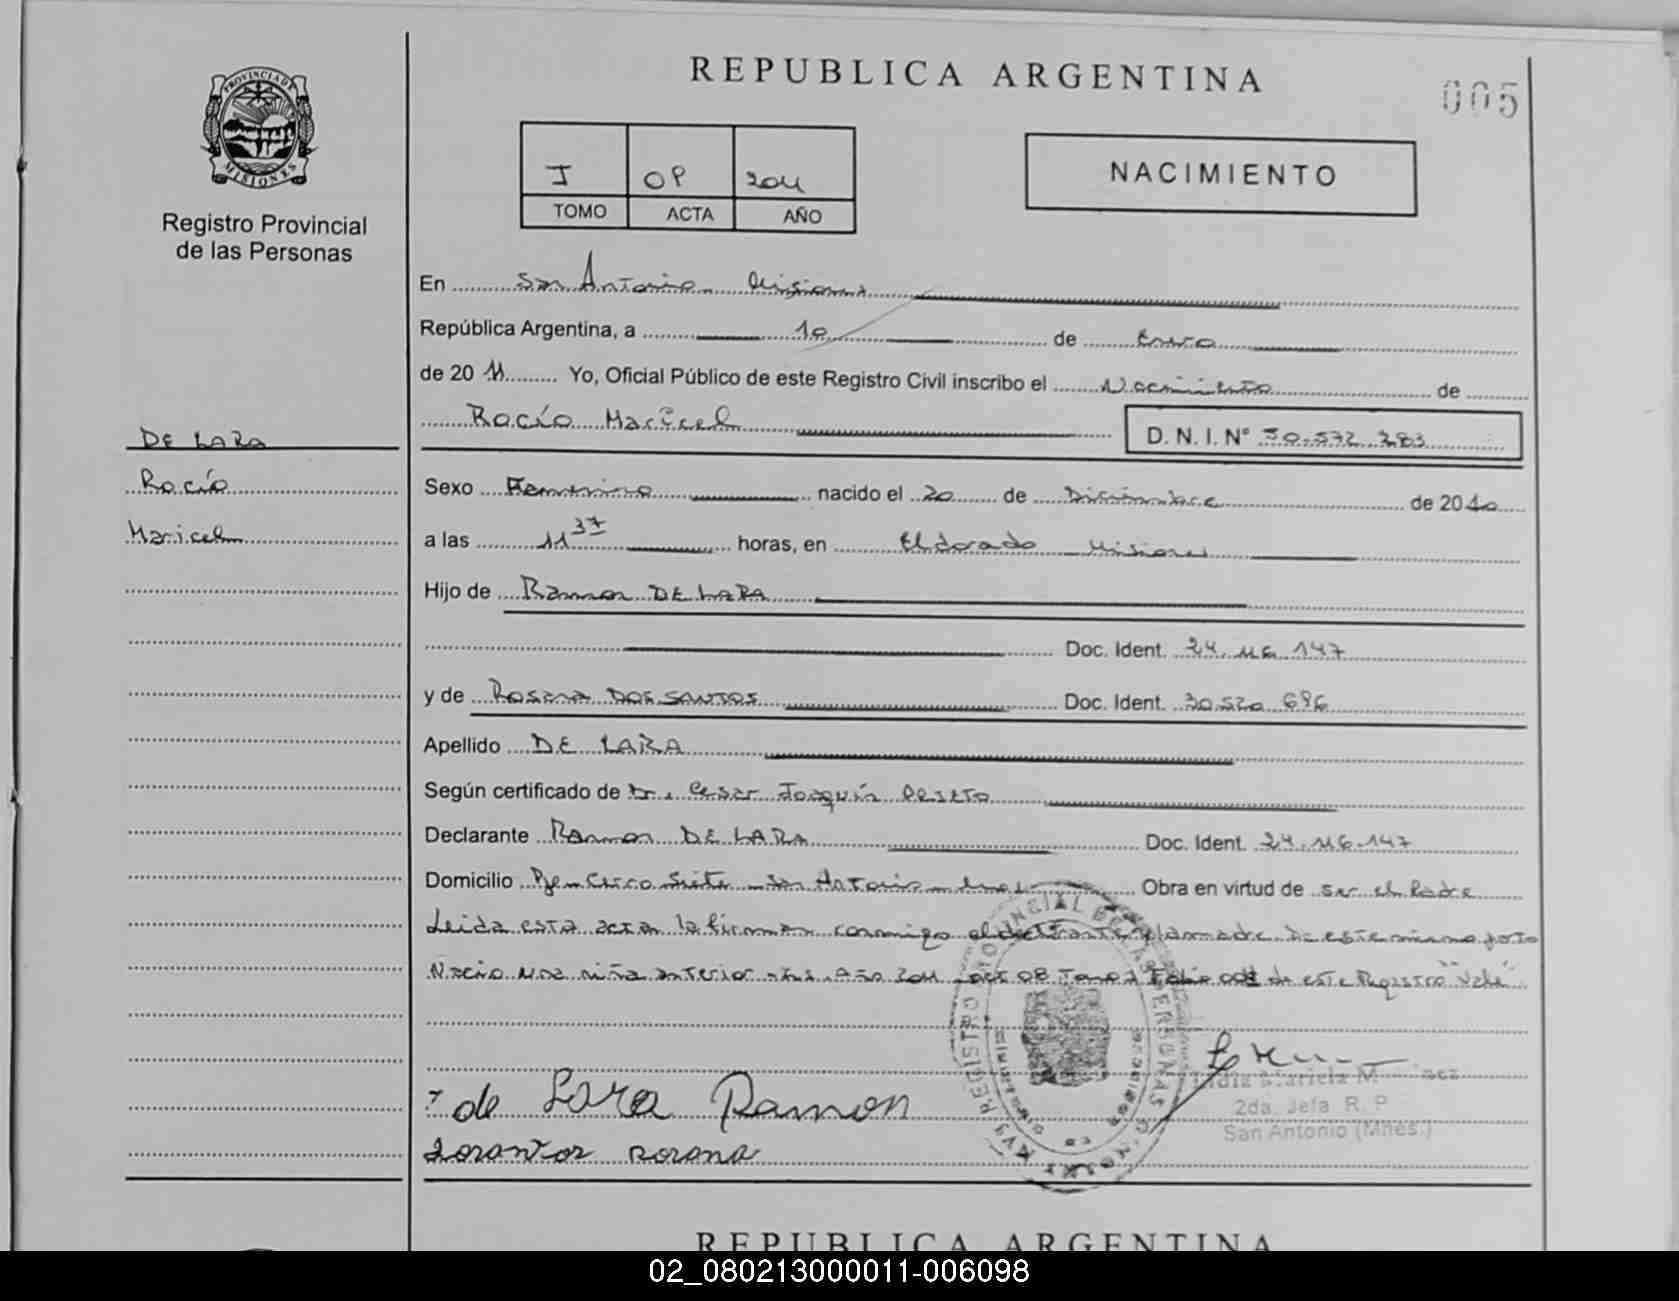 REPUBLICA ARGENTINA
005
PROVINCIA DE MISIONES
Registro Provincial
de las Personas
I 09 2011
TOMO ACTA AÑO
NACIMIENTO
En San Antonio Misiones
República Argentina, a 10 de Enero
de 20 11 Yo, Oficial Público de este Registro Civil inscribo el Nacimiento de
Rocío Maricel D. N. I. Nº 50.572.283
DE LARA
Rocío
Maricel
Sexo Femenino nacido el 20 de Diciembre de 2010
a las 11 37 horas, en Eldorado Misiones
Hijo de Ramon DE LARA
Doc. Ident. 24.116.147
y de Rosana DOS SANTOS Doc. Ident. 30.520.696
Apellido DE LARA
Según certificado de Dr. Cesar Joaquín
Declarante Ramon DE LARA Doc. Ident. 24.116.147
Domicilio San Antonio Obra en virtud de ser el Padre
Leida esta acta la firman conmigo el declarante y la madre. De este mismo parto
Nació una niña anterior Año 2011 act 08 Tomo I Folio de este Registro "Vale"
de Lara Ramon
rosana
2da. Jefa R. P.
San Antonio (Mnes.)
REPUBLICA ARGENTINA
02_080213000011-006098